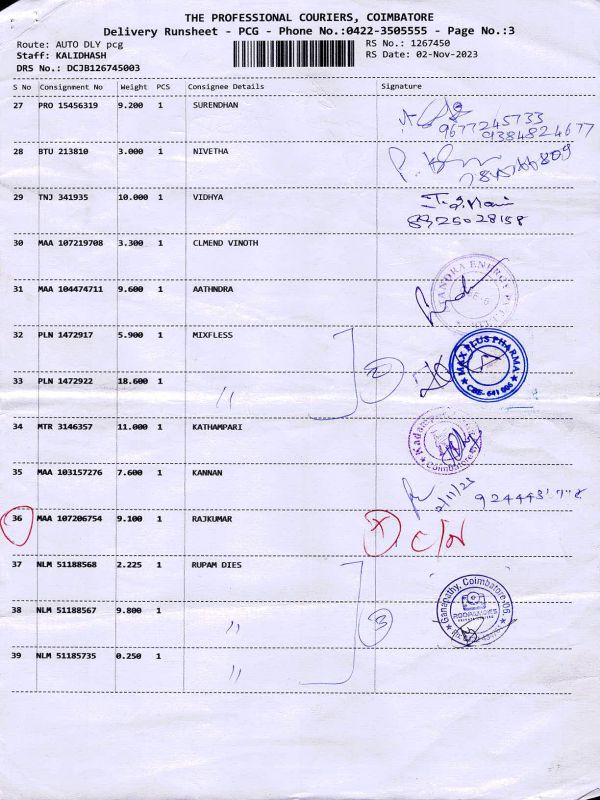 THE PROFESSIONAL COURIERS, COIMBATORE
Delivery Runsheet - PCG - Phone No.:0422-3505555 - Page No.:3
Route: AUTO DLY pcg RS No.: 1267450
Staff: KALIDHASH RS Date: 02-Nov-2023
DRS No.: DCJB126745003
S No Consignment No Weight PCS Consignee Details Signature
27 PRO 15456319 9.200 1 SURENDHAN
9677245733
9384824677
28 BTU 213810 3.000 1 NIVETHA
29 TNJ 341935 10.000 1 VIDHYA
8925028158
30 MAA 107219708 3.300 1 CLMEND VINOTH
31 MAA 104474711 9.600 1 AATHNDRA
32 PLN 1472917 5.900 1 MIXFLESS
MAX PLUS PHARMA
CBE- 641 006
2
33 PLN 1472922 18.600 1 〃
34 MTR 3146357 11.000 1 KATHAMPARI
Coimbatore
35 MAA 103157276 7.600 1 KANNAN
2/11/23
36 MAA 107206754 9.100 1 RAJKUMAR X C/N
37 NLM 51188568 2.225 1 RUPAM DIES
Ganapathy, Coimbatore-06
38 NLM 51188567 9.800 1 〃 3
39 NLM 51185735 0.250 1 〃